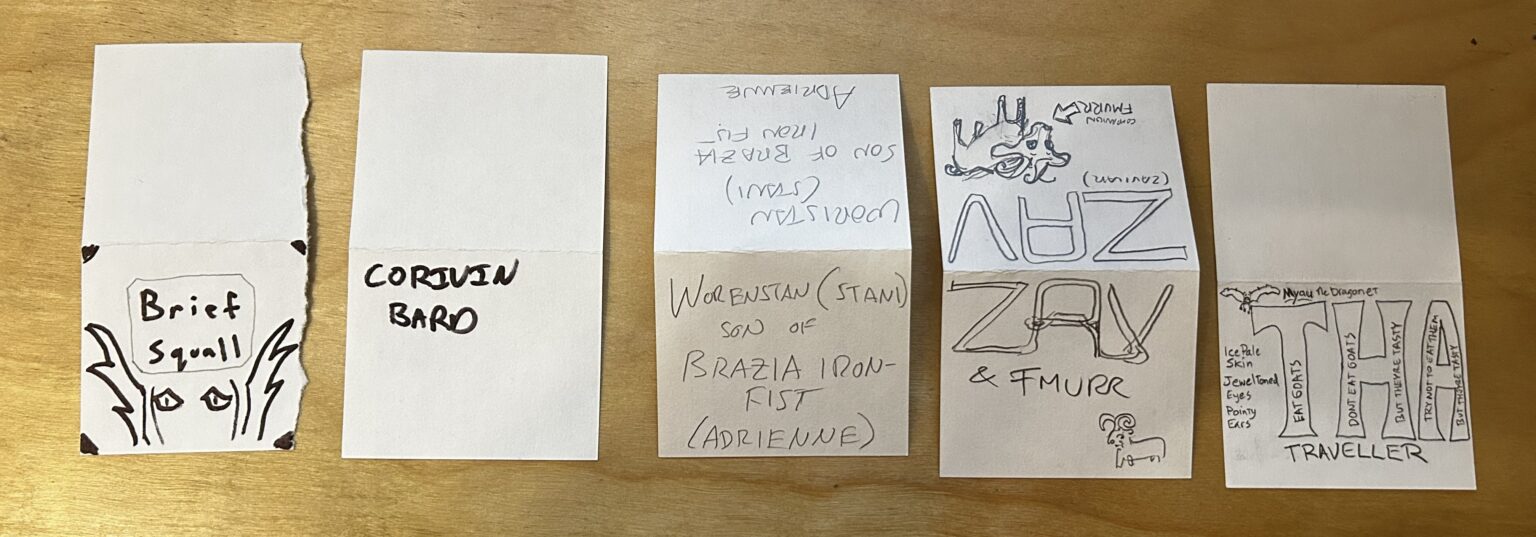 Brief
Squall
CORIVIN
BARD
ADRIENNE
IRON FIST
SON OF BRAZIA
(STANI)
WORISTAN
WORENSTAN (STANI)
SON OF
BRAZIA IRON-
FIST
(ADRIENNE)
COMPANION
FMURR
(ZAVIVAR)
ZAV
ZAV
& FMURR
Myau The Dragonet
THA
Ice Pale
Skin
Jewel Toned
Eyes
Pointy
Ears
EAT GOATS
DONT EAT GOATS
BUT THEYRE TASTY
TRY NOT TO EAT THEM
BUT THEYRE TASTY
TRAVELLER